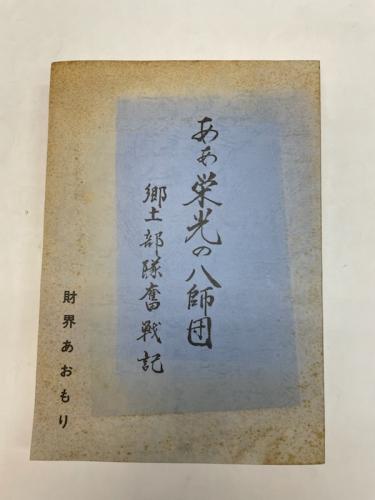 ああ栄光の八師団
郷土部隊奮戦記
財界あおもり